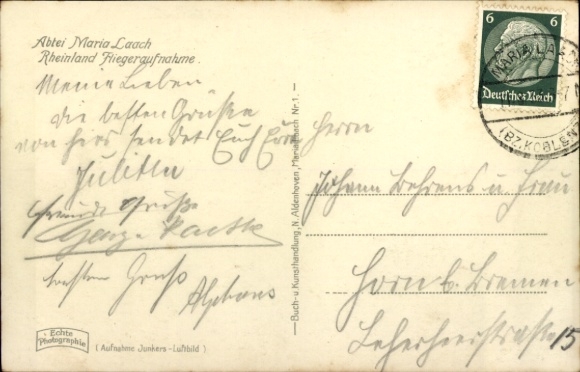 Abtei Maria Laach
Rheinland Fliegeraufnahme
Meine Lieben
die besten Grüße
von hier sendet Euch Eure
Julitta
Grüße
Georg
besten Gruß
Alphons
Echte
Photographie
(Aufnahme Junkers-Luftbild)
Buch- u. Kunsthandlung, N. Aldenhoven, Maria Laach Nr. 1.
6 6
Deutsches Reich
MARIA LAACH
(BZ. KOBLENZ
Herrn
Johann Behrens u Frau
Horn b. Bremen
Leherheerstraße 15